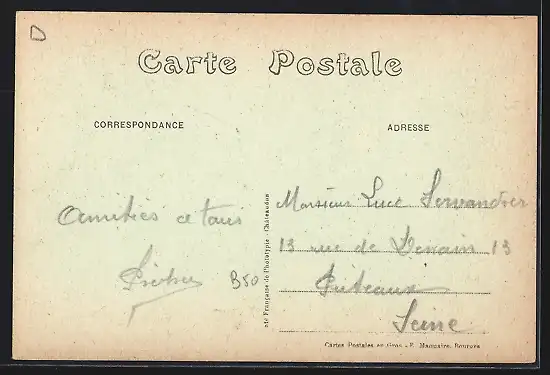 D
Carte Postale
CORRESPONDANCE
ADRESSE
Amitiés a tous
B50
Monsieur Luce Servandrer
13 rue de Denain 13
Puteaux
Seine
Sté Française de Phototypie - Châteaudun
Cartes Postales en Gros - E. Maquaire, Bourges